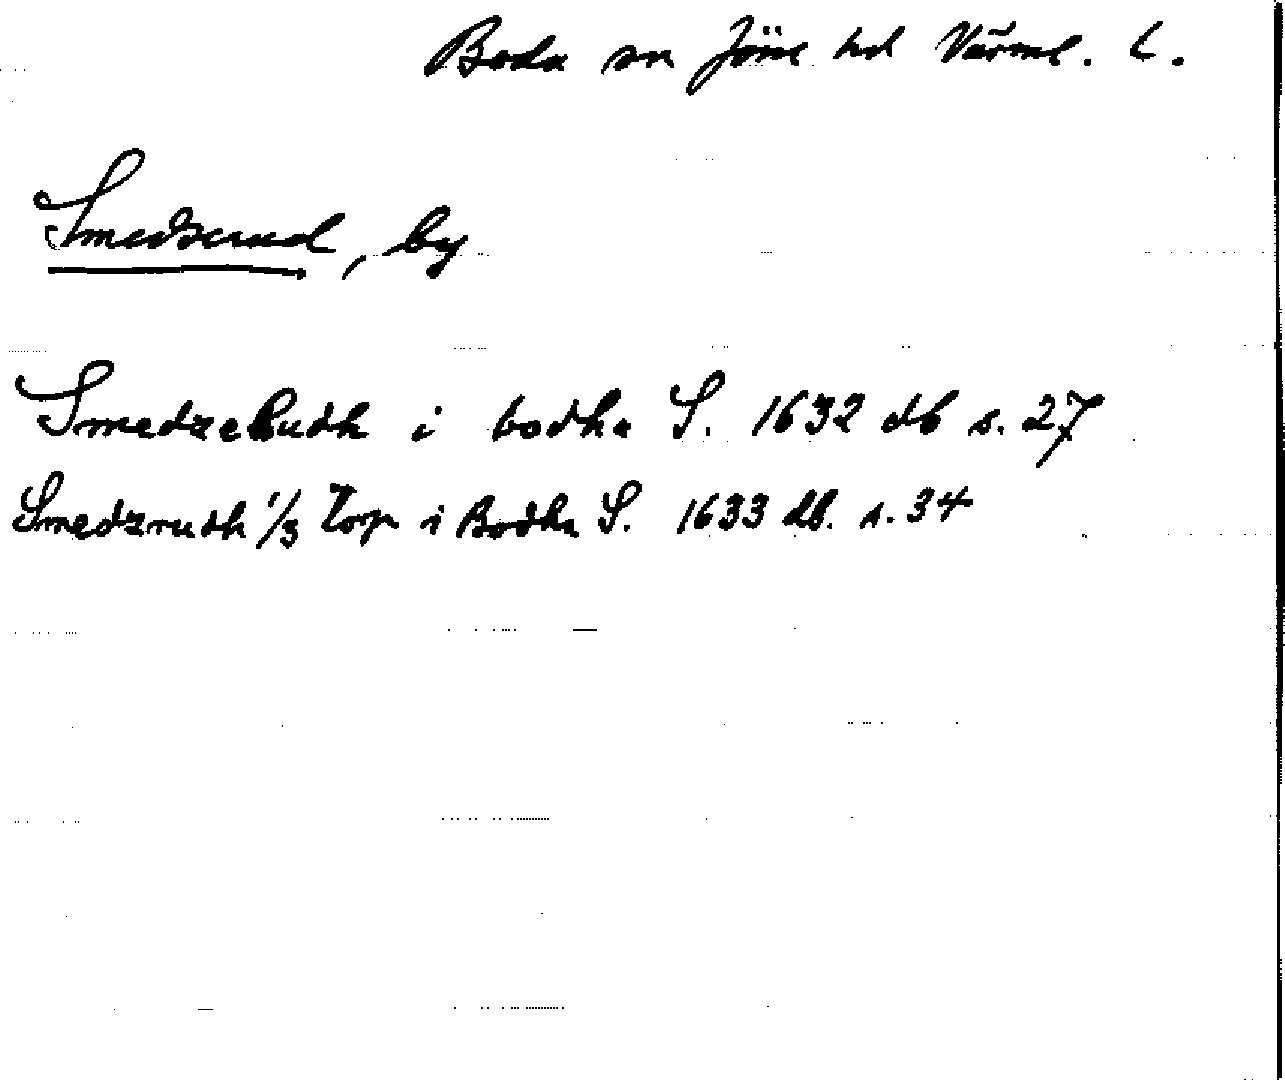 Boda sn Jösse hd Värml. l.
Smedserud, by
SmedzeRudh i bodha S. 1632 db s. 27
Smedzrudh 1/3 Torp i Bodha S. 1633 db. s. 34